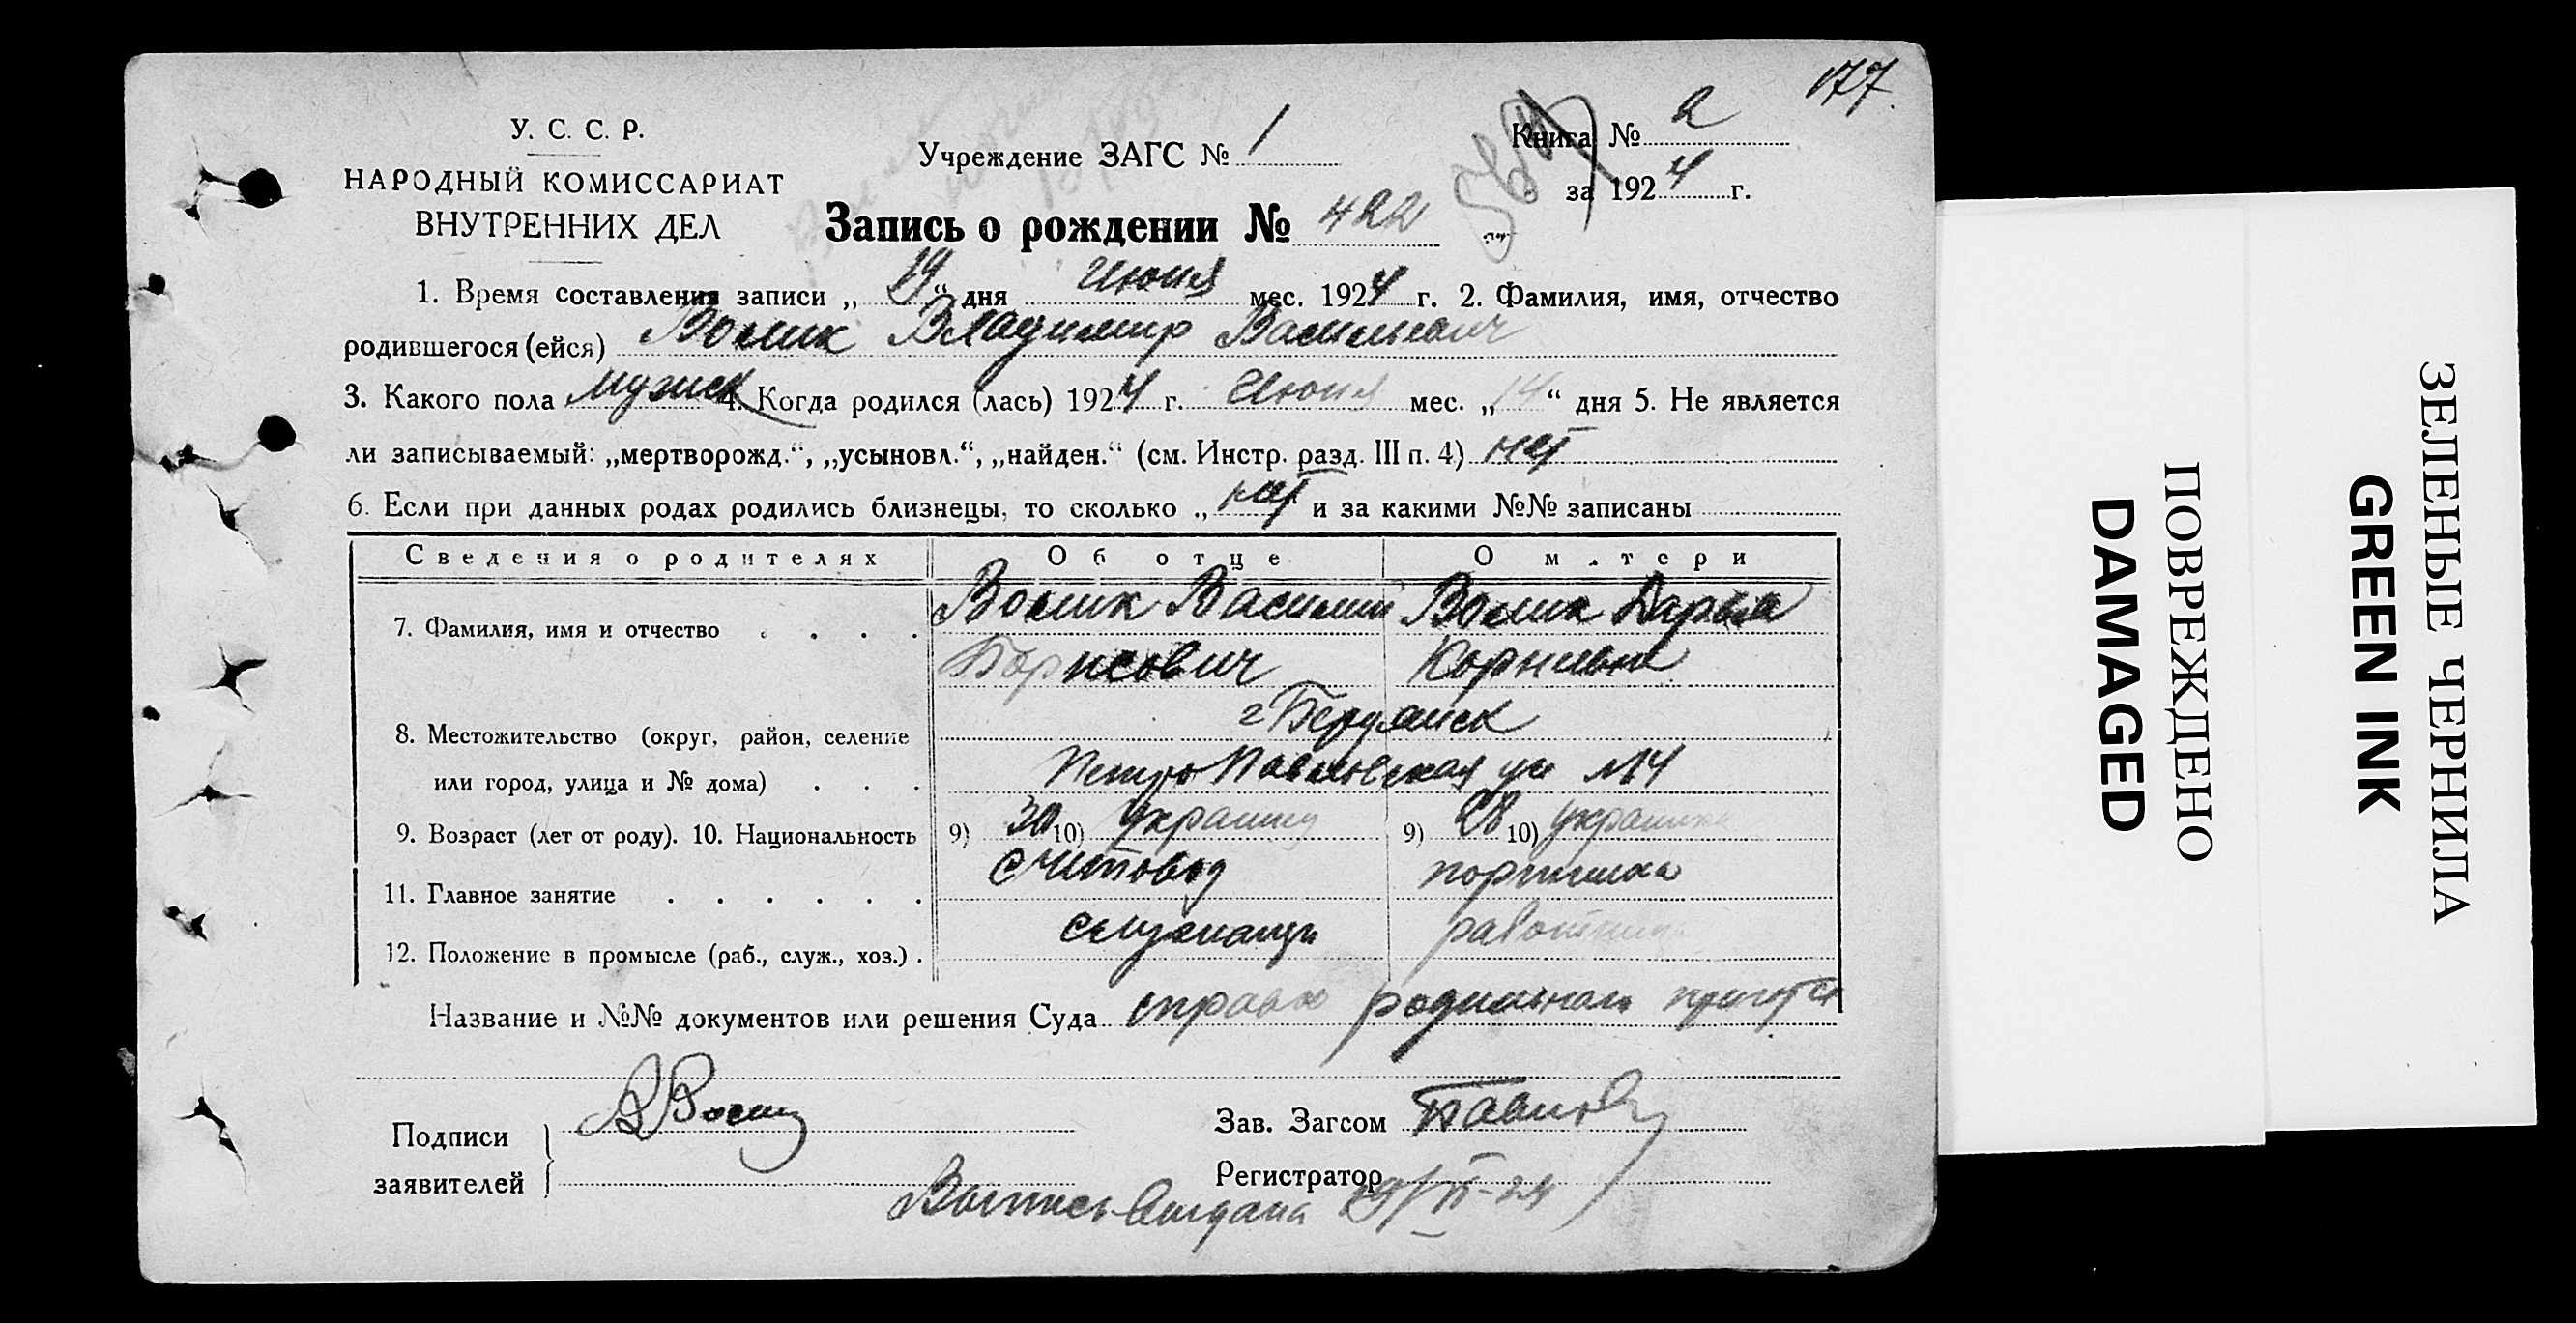 177
У. С. С. Р.
НАРОДНЫЙ КОМИССАРИАТ
ВНУТРЕННИХ ДЕЛ
Учреждение ЗАГС № 1
Книга № 2
за 1924 г.
Запись о рождении № 422
1. Время составления записи „19“ дня Июня мес. 1924 г. 2. Фамилия, имя, отчество
родившегося (ейся) Волик Владимир Васильевич
3. Какого пола мужск 4. Когда родился (лась) 1924 г. Июня мес. „14“ дня 5. Не является
ли записываемый: „мертворожд.“, „усыновл.“, „найден.“ (см. Инстр. разд. III п. 4) нет
6. Если при данных родах родились близнецы, то сколько „ нет и за какими №№ записаны
Сведения о родителях Об отце О м.тери
7. Фамилия, имя и отчество Волик Василий Волик Дарья
Борисович Корнеевна
8. Местожительство (округ, район, селение г Бердянск
или город, улица и № дома) Петро Павловская ул №4
9. Возраст (лет от роду). 10. Национальность 9) 30 10) украинец 9) 28 10) украинка
11. Главное занятие счетовод портниха
12. Положение в промысле (раб., служ., хоз.) служащи работница
Название и №№ документов или решения Суда справка родильного приюта
Подписи
заявителей
ВВолик
Зав. Загсом Павлов
Регистратор
Выпись выдана 19/VI-24
ПОВРЕЖДЕНО
DAMAGED
ЗЕЛЕНЫЕ ЧЕРНИЛА
GREEN INK